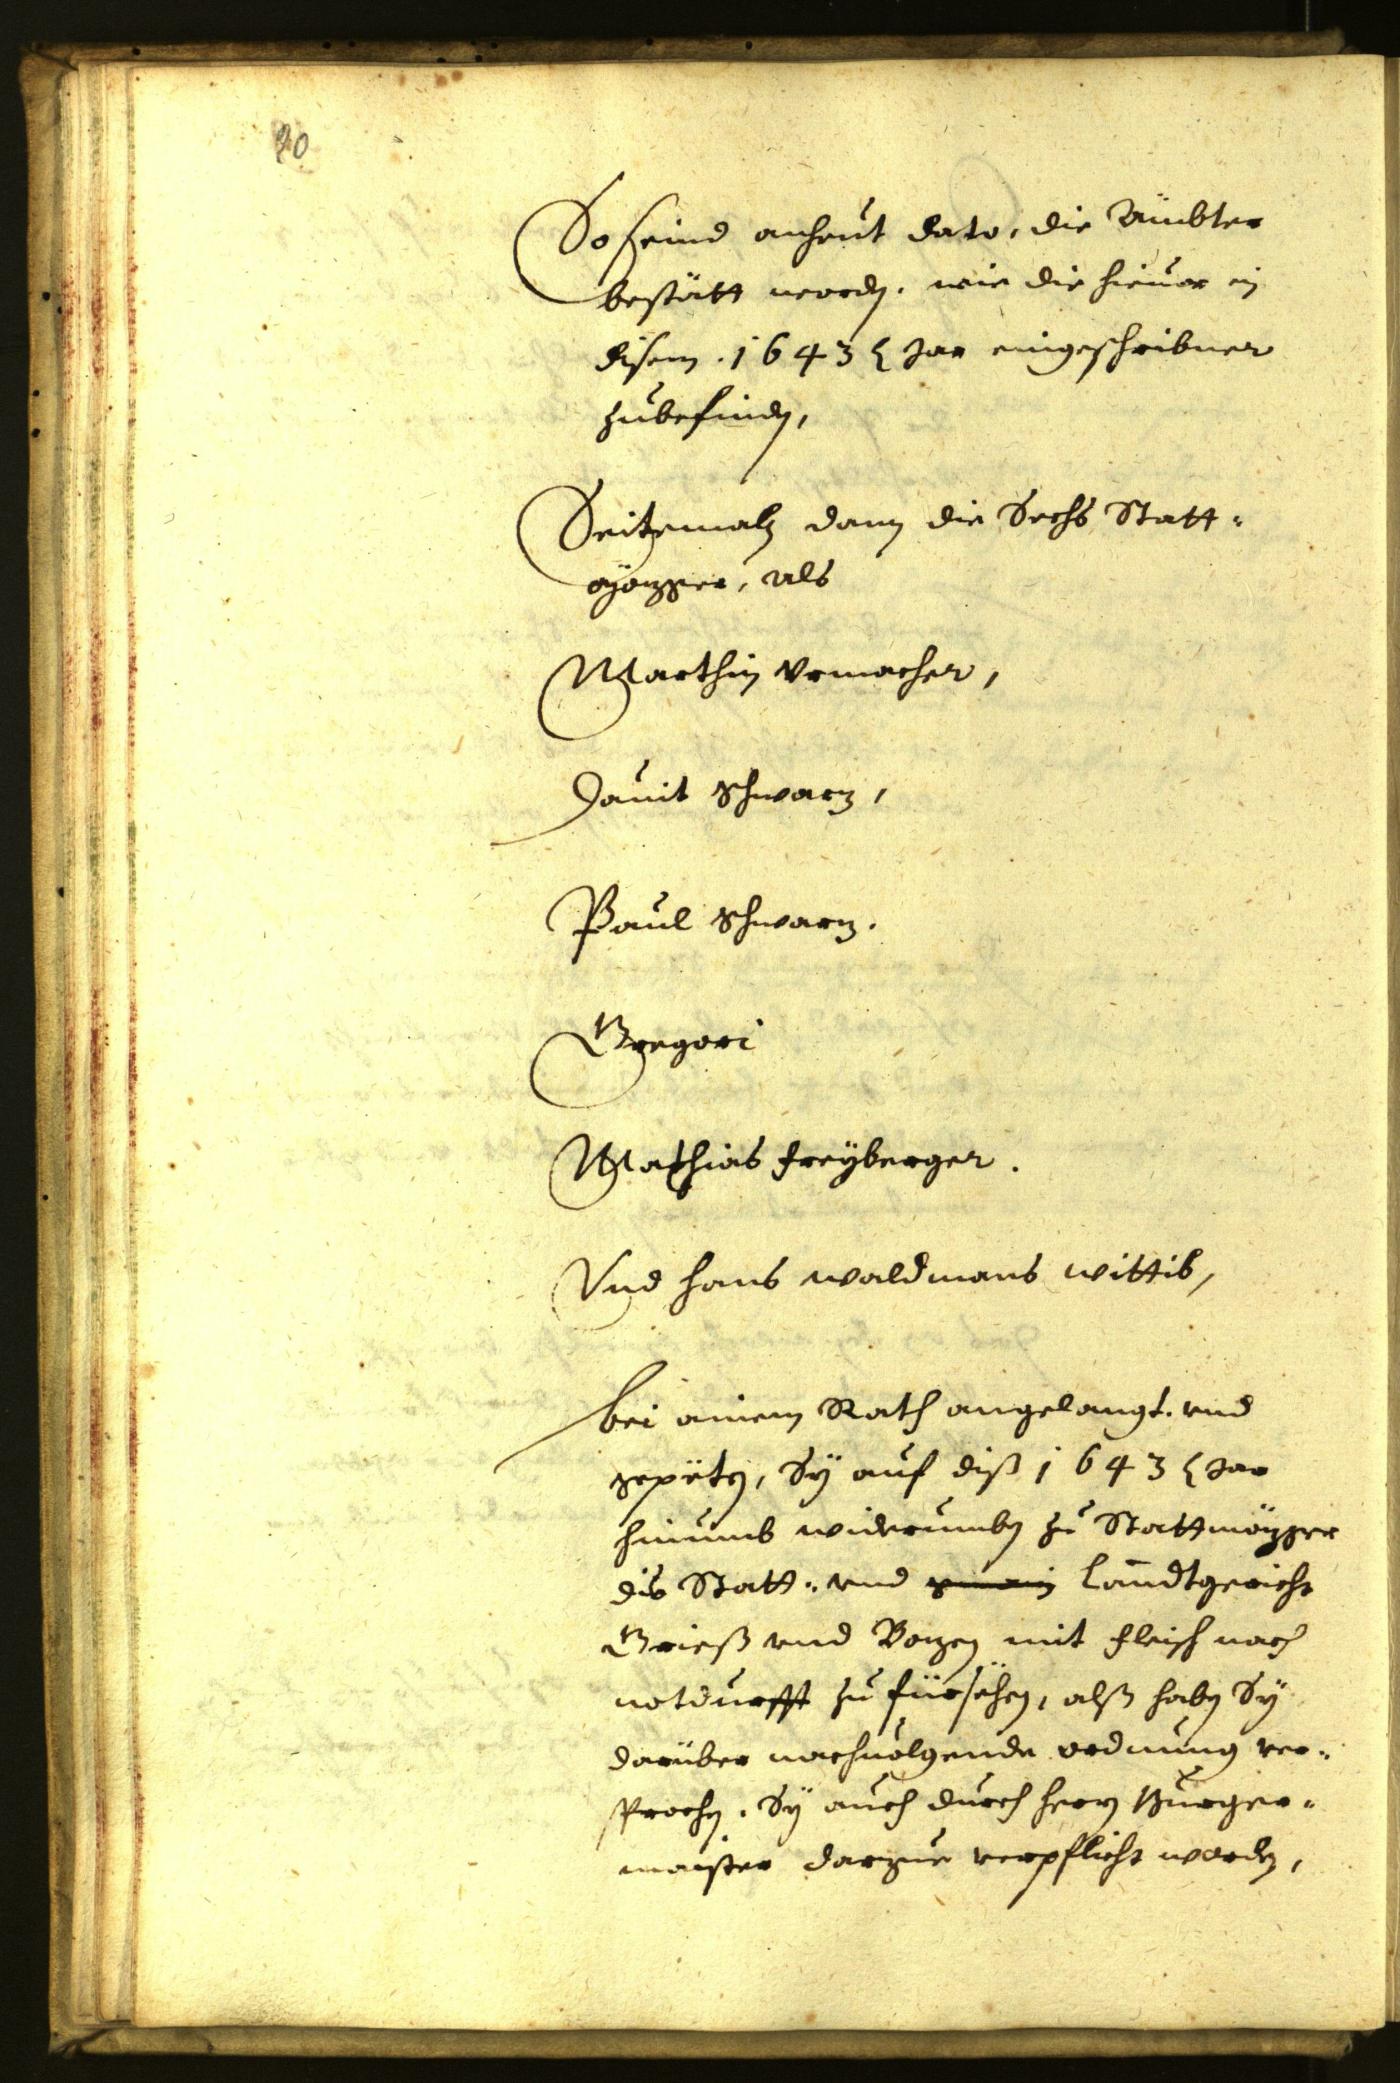 20
So seind anheut dato, die Ämbter
bestätt worden. wie die hieuor in
disem .1643 Jar eingeschribner
zubefinden,
Seitemaln dann die Sechs Statt=
mözger, als
Marthin Vrmacher,
Dauit Schwarz,
Paul Schwarz.
Gregori
Mathias Freÿberger.
Vnd Hans Waldmans Wittib,
bei ainem Rath angelangt. vnd
gepëten, Sÿ auf diß 1643 Jar
hinumb widerumben zu Stattmözger
die Statt= vnd Landtgericht
Grieß vnd Bozen mit Fleisch nach
notdurfft zu fürsëhen, alß haben Sÿ
darüber nachuolgende ordnung ver=
sprochen. Sÿ auch durch herrn Burger=
maister darzue verpflicht worden,